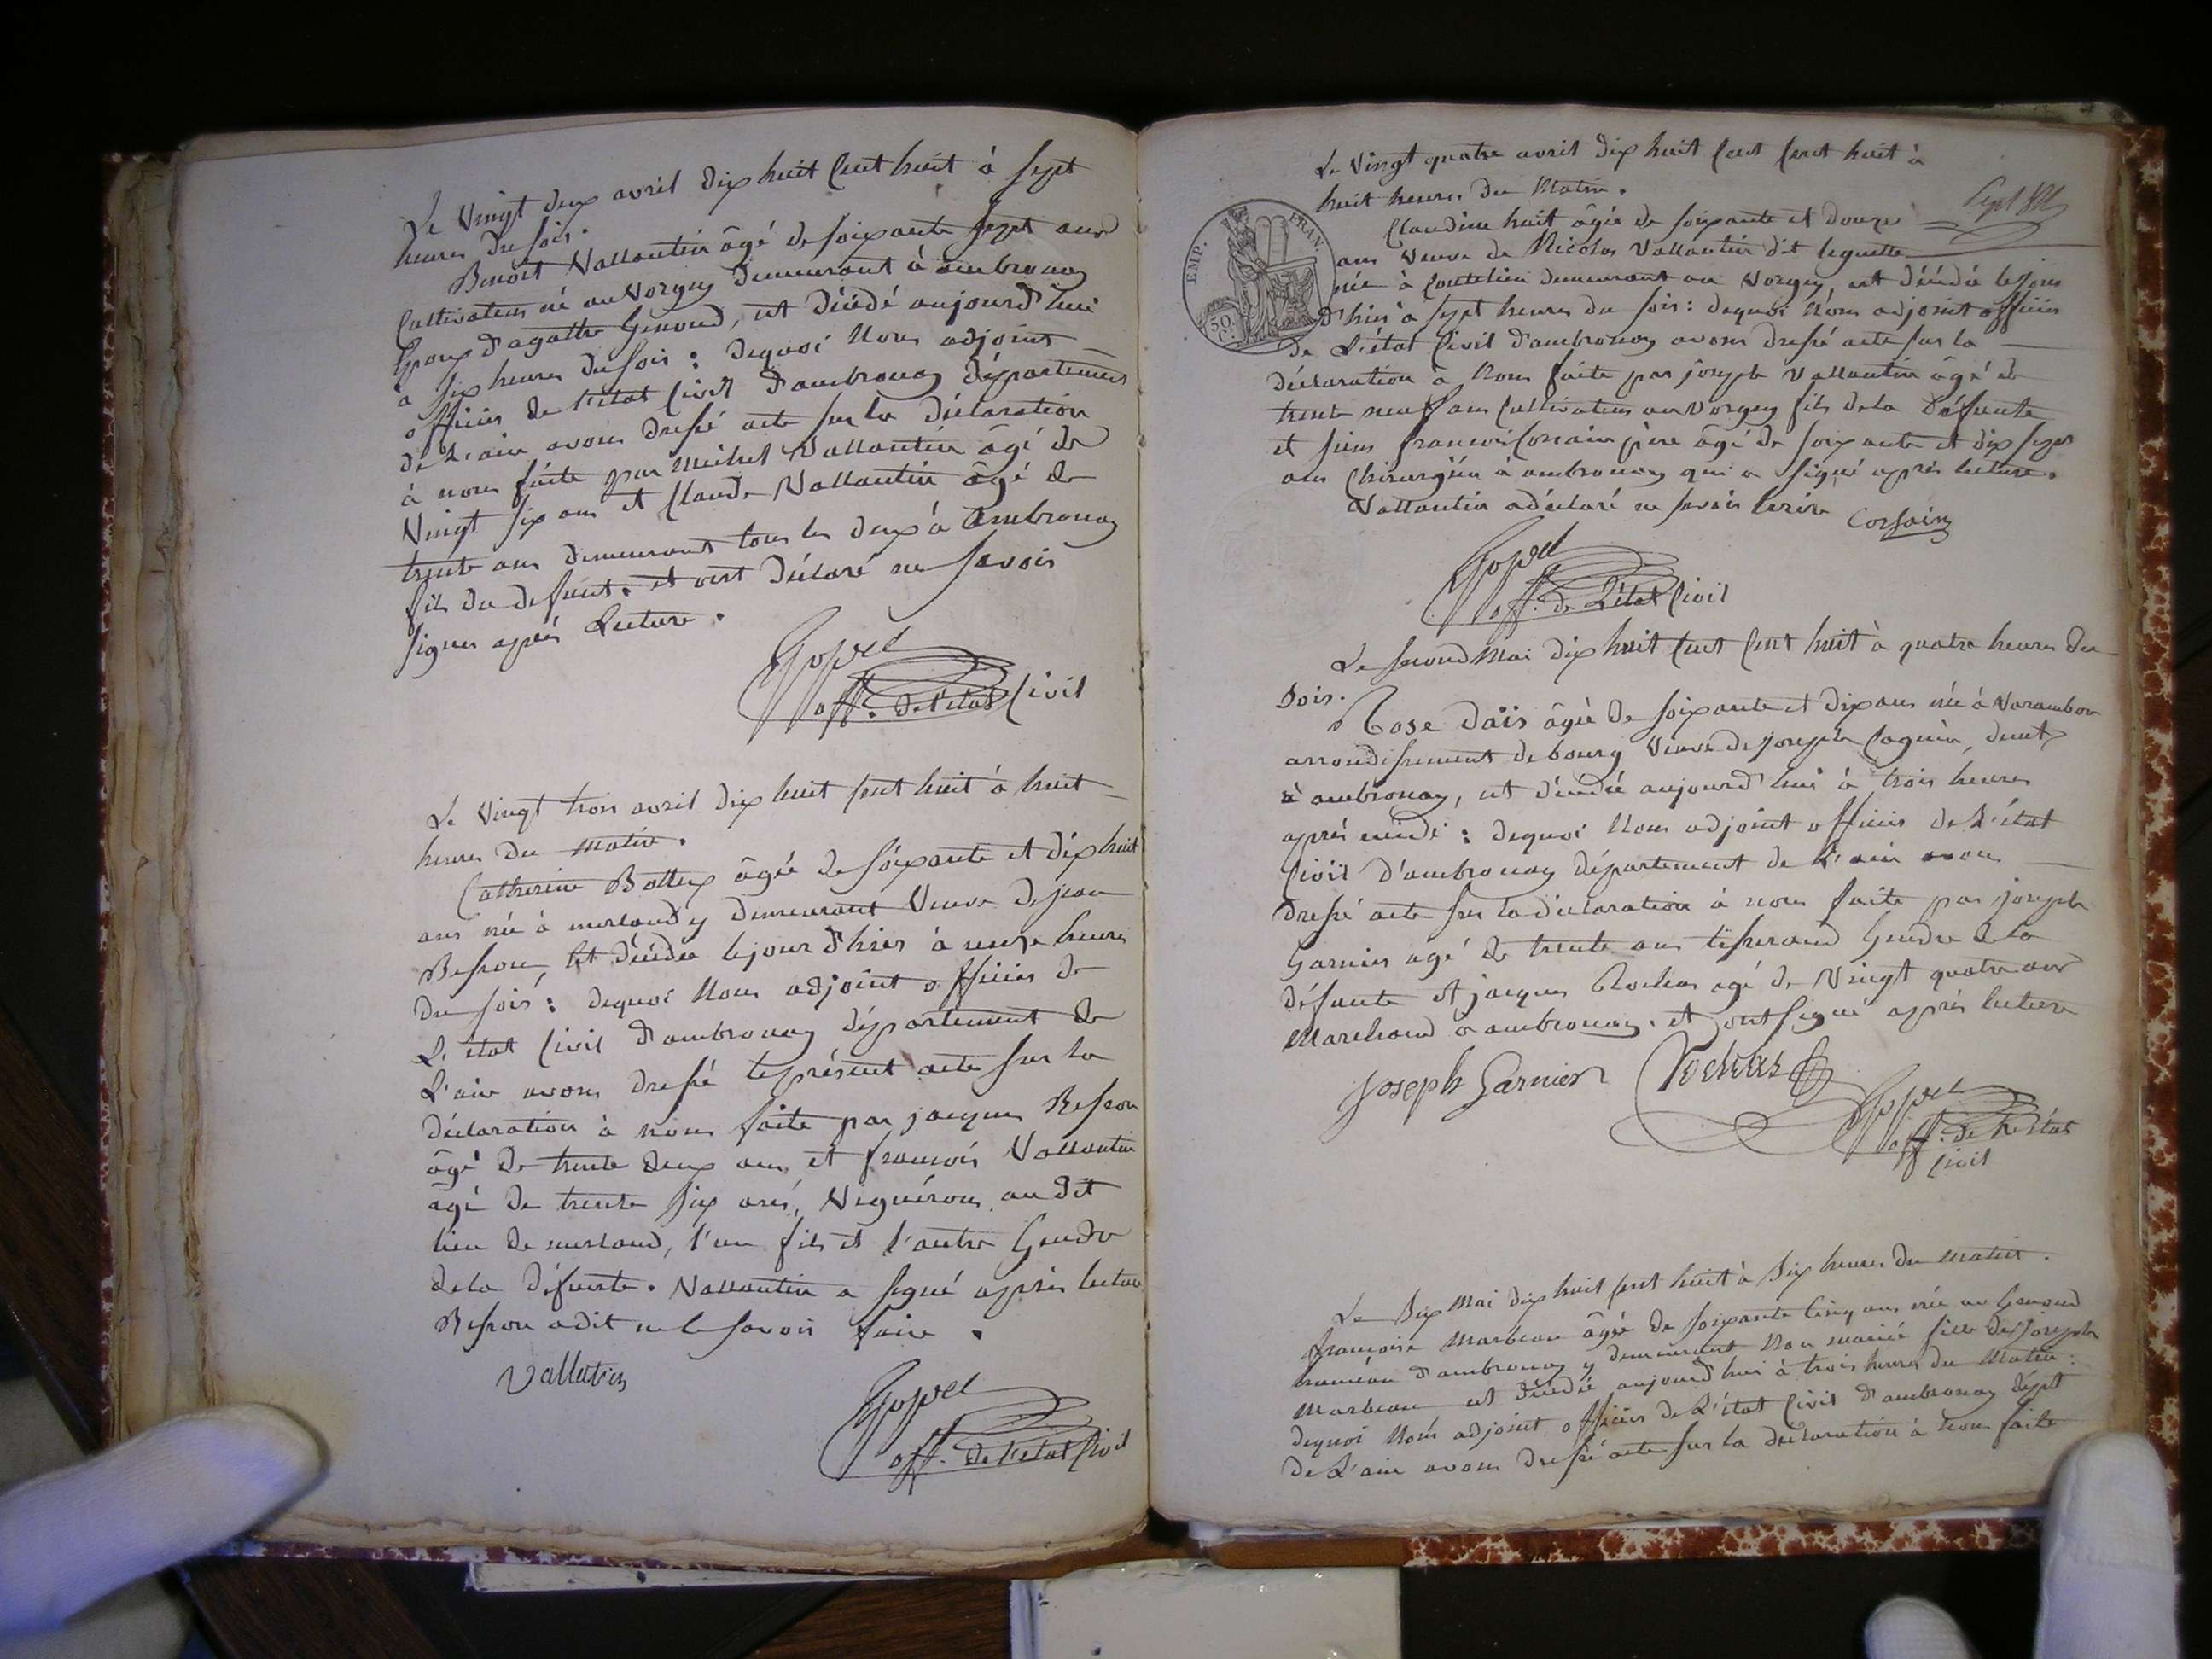 Le Vingt deux avril dix huit Cent huit à Sept
heures du soir.
Benoit Vallantin âgé de soixante sept ans
Cultivateur né au Vorgey demeurant à ambronay
Epoux d'agathe Genoud, est décédé aujourd'hui
à six heures du soir : dequoi Nous adjoint
officier de l'état Civil d'ambronay département
de L'ain avons dressé acte sur la déclaration
à nous faite par Michel Vallantin âgé de
Vingt six ans et Claude Vallantin âgé de
trente ans demeurant tous les deux à Ambronay
fils du defunt. et ont déclaré ne savoir
signer après Lecture.
off. de l'etat Civil
Le Vingt trois avril dix huit cent huit à huit
heures du matin.
Catherine Bottex âgée de soixante et dix huit
ans née à merland y demeurant Veuve de jean
Besson, est décédée le jour d'hier à onze heures
du soir : dequoi Nous adjoint officier de
L'état Civil d'ambronay département de
L'ain avons dressé le présent acte sur la
déclaration à nous faite par jacques Besson
âgé de trente deux ans et françois Vallantin
âgé de trente six ans, Vignérons au dit
lieu de merland, l'un fils et l'autre Gendre
de la défunte. Vallantin a signé après lecture
Besson a dit ne le savoir faire.
Vallantin
off. de l'etat Civil
Le Vingt quatre avril dix huit Cent Cent huit à
huit heures du Matin.
Claudine huit âgée de soixante et douze
ans Veuve de Nicolas Vallantin dit
née à demeurant au Vorgey, est décédée le jour
d'hier à sept heures du soir : dequoi Nous adjoint officier
de L'état Civil d'ambronay avons dressé acte sur la
déclaration à Nous faite par joseph Vallantin âgé de
trente neuf ans Cultivateur au Vorgey fils de la Défunte
et sieur françois Corsain père âgé de soixante et dix sept
ans Chirurgien à ambronay qui a signé après lecture.
Vallantin a déclaré ne savoir Ecrire Corsain
off. de L'état Civil
EMP. FRAN.
50 C.
Le second Mai dix huit Cent Cent huit à quatre heures du
soir.
Rose Daïs âgée de soixante et dix ans née à Varambon
arrondissement de bourg Veuve de joseph demt
à ambronay, est décédée aujourd'hui à trois heures
après midi : dequoi Nous adjoint officier de L'état
Civil d'ambronay département de L'ain avons
dressé acte sur la déclaration à nous faite par joseph
Garnier agé de trente ans tisserand Gendre de la
défunte et jacques Rochas agé de Vingt quatre ans
Marchand à ambronay. et ont signé après lecture
Joseph Garnier Rochas
off. de L'état
Civil
Le Six Mai dix huit cent huit à Six heures du matin.
françoise Marbeau âgée de soixante Cinq ans née au Genoud
hameau d'ambronay y demeurant Non mariée fille de Joseph
Marbeau est décédée aujourd'hui à trois heures du Matin :
dequoi Nous adjoint officier de L'état Civil d'ambronay dépt
de L'ain avons dressé acte sur la déclaration à nous faite